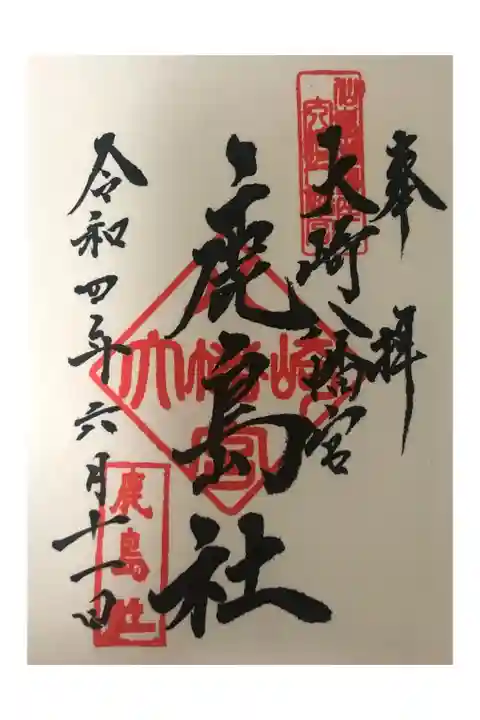 奉拝
大崎八幡宮
鹿島社
令和四年六月十一日
鹿島社